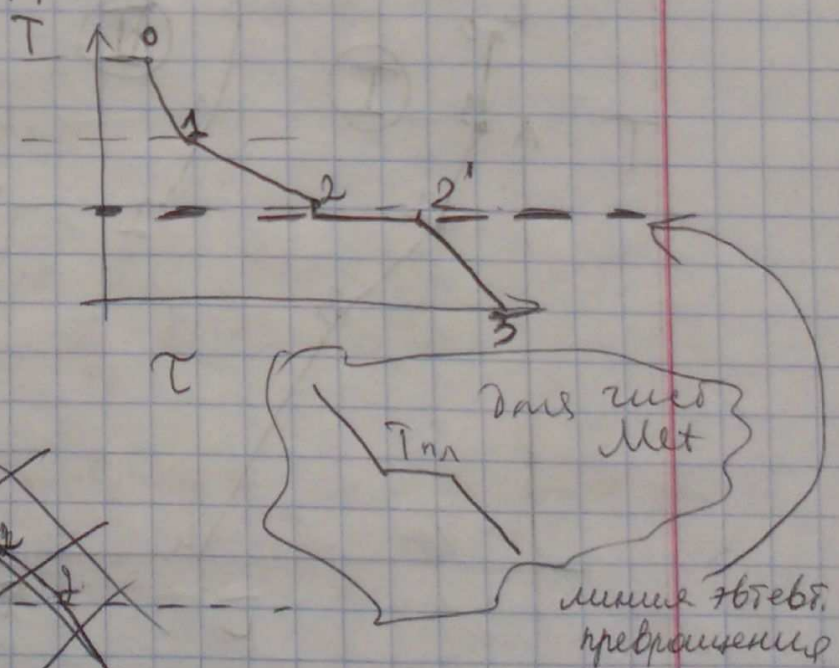 T
0
1
2
2'
3
τ
Для чист
Met
Tпл
линия эвтект.
превращения